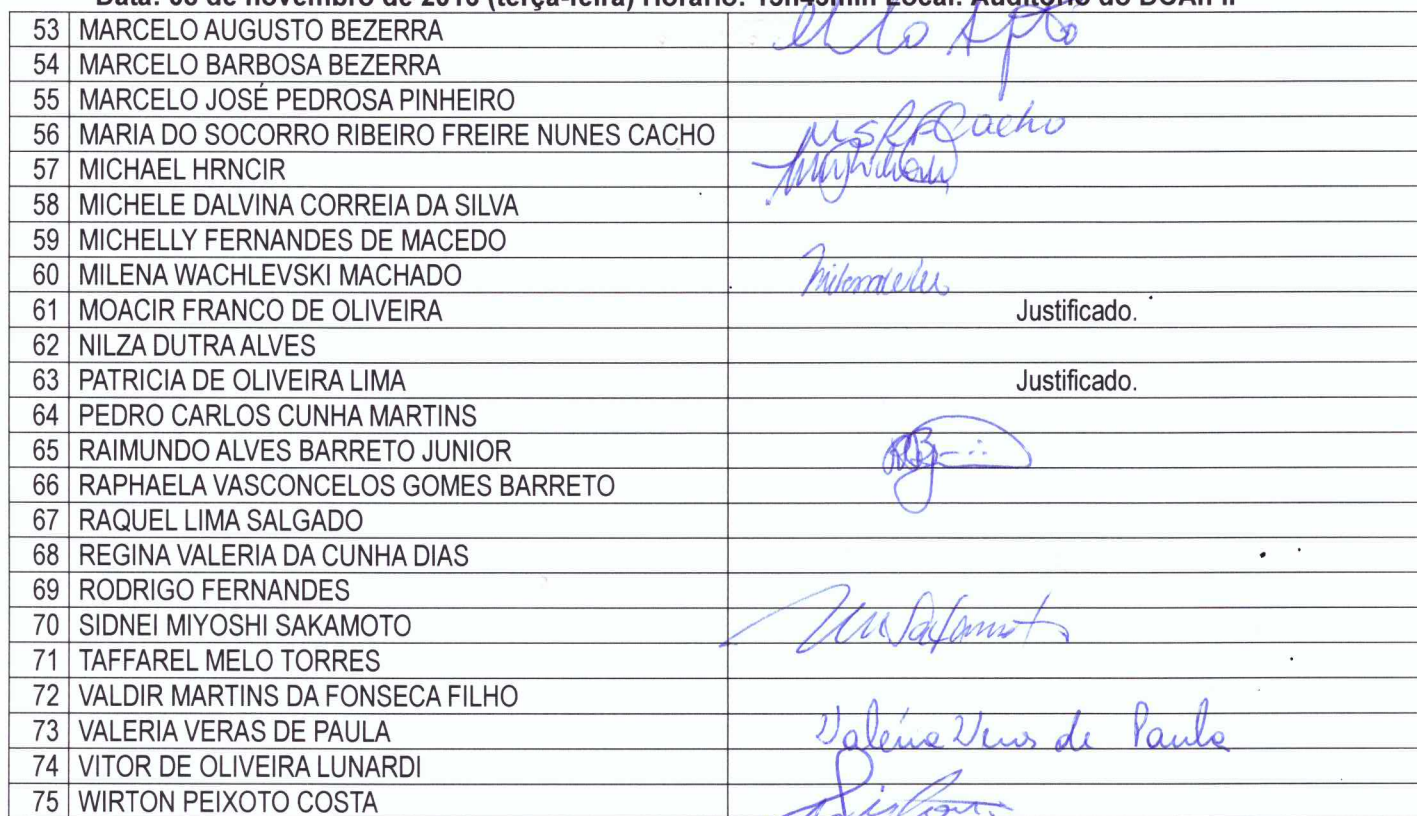 53 MARCELO AUGUSTO BEZERRA
54 MARCELO BARBOSA BEZERRA
55 MARCELO JOSÉ PEDROSA PINHEIRO
56 MARIA DO SOCORRO RIBEIRO FREIRE NUNES CACHO MSRFCacho
57 MICHAEL HRNCIR
58 MICHELE DALVINA CORREIA DA SILVA
59 MICHELLY FERNANDES DE MACEDO
60 MILENA WACHLEVSKI MACHADO
61 MOACIR FRANCO DE OLIVEIRA Justificado.
62 NILZA DUTRA ALVES
63 PATRICIA DE OLIVEIRA LIMA Justificado.
64 PEDRO CARLOS CUNHA MARTINS
65 RAIMUNDO ALVES BARRETO JUNIOR
66 RAPHAELA VASCONCELOS GOMES BARRETO
67 RAQUEL LIMA SALGADO
68 REGINA VALERIA DA CUNHA DIAS
69 RODRIGO FERNANDES
70 SIDNEI MIYOSHI SAKAMOTO
71 TAFFAREL MELO TORRES
72 VALDIR MARTINS DA FONSECA FILHO
73 VALERIA VERAS DE PAULA Valéria Veras de Paula
74 VITOR DE OLIVEIRA LUNARDI
75 WIRTON PEIXOTO COSTA